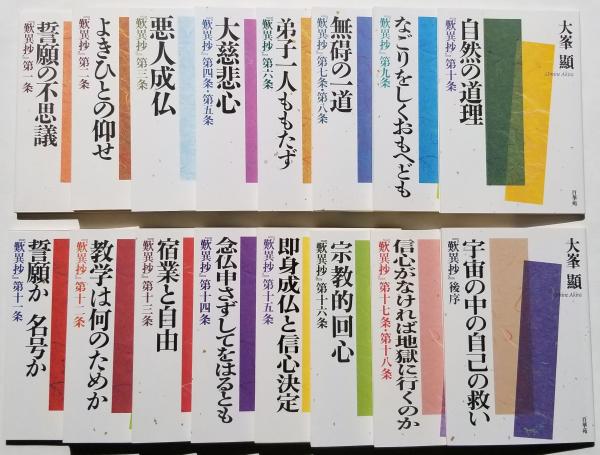 誓願の不思議
『歎異抄』第一条
よきひとの仰せ
『歎異抄』第二条
悪人成仏
『歎異抄』第三条
大慈悲心
『歎異抄』第四条・第五条
弟子一人ももたず
『歎異抄』第六条
無碍の一道
『歎異抄』第七条・第八条
なごりをしくおもへども
『歎異抄』第九条
自然の道理
『歎異抄』第十条
大峯 顯
Omine Akira
百華苑
誓願か 名号か
『歎異抄』第十一条
教学は何のためか
『歎異抄』第十二条
宿業と自由
『歎異抄』第十三条
念仏申さずしてをはるとも
『歎異抄』第十四条
即身成仏と信心決定
『歎異抄』第十五条
宗教的回心
『歎異抄』第十六条
信心がなければ地獄に行くのか
『歎異抄』第十七条・第十八条
宇宙の中の自己の救い
『歎異抄』後序
大峯 顯
Omine Akira
百華苑